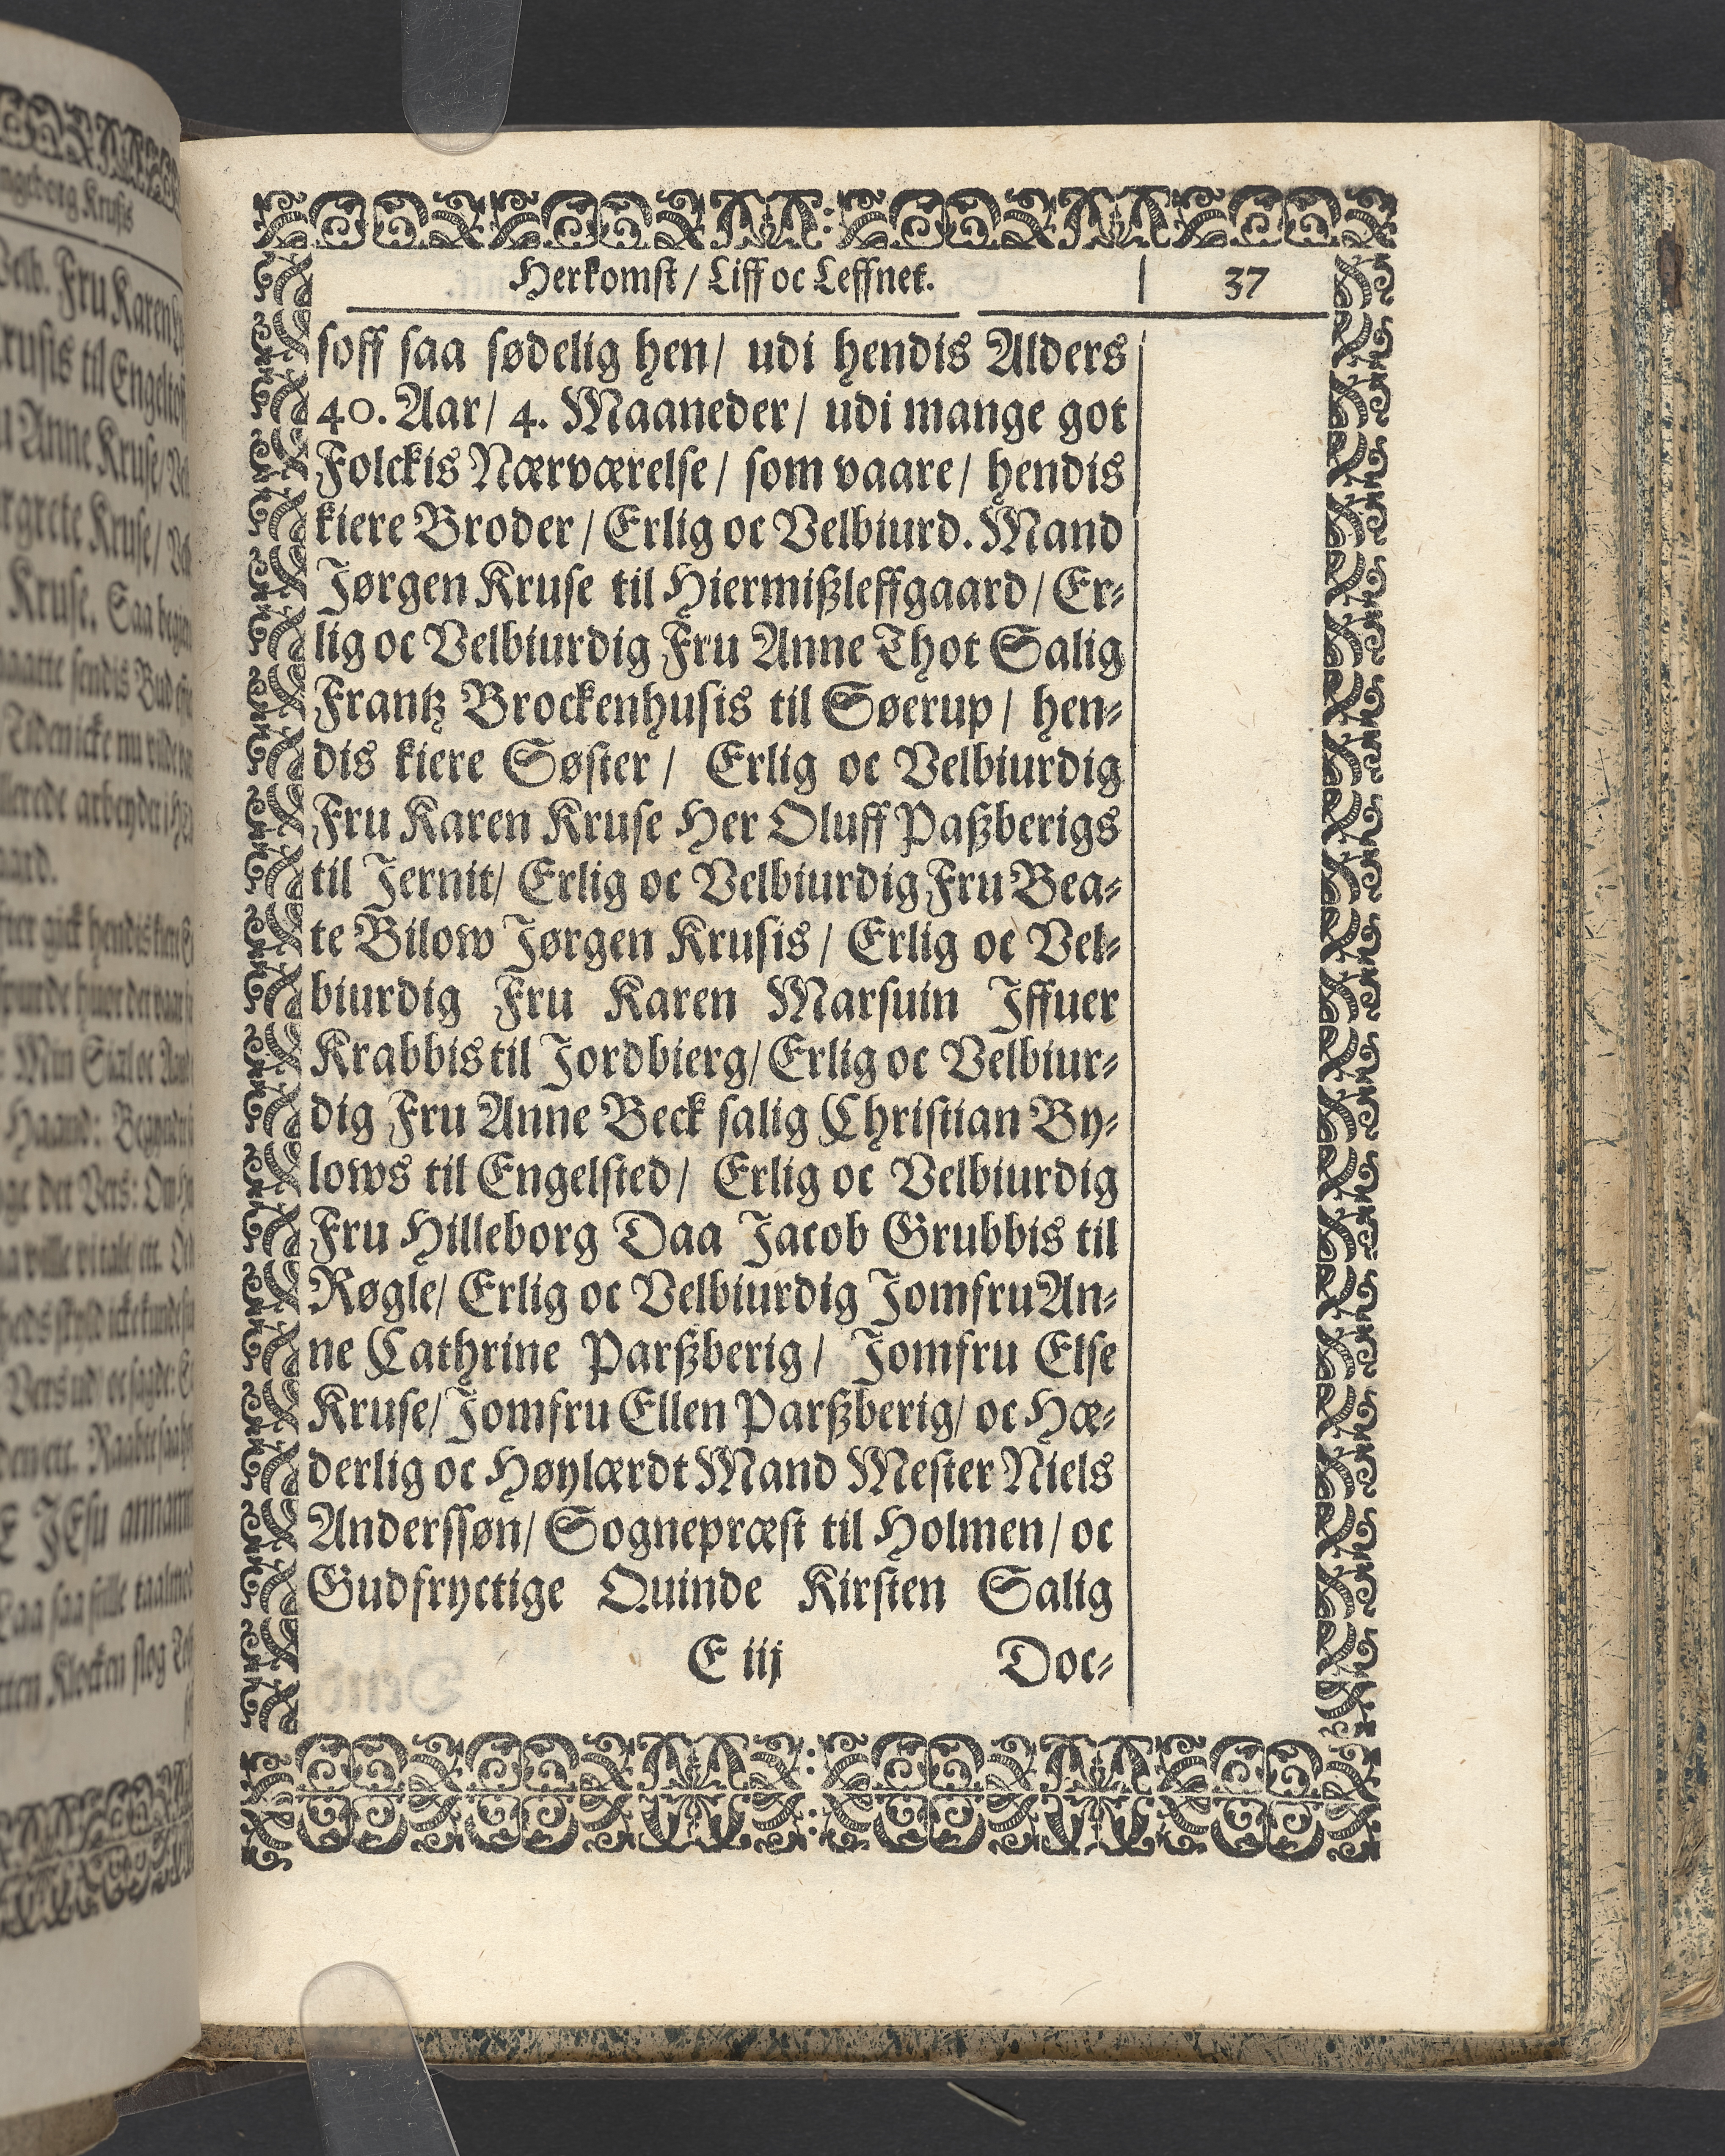 Herkomst / Liff oc Leffnet. 37
soff saa sødelig hen / udi hendis Alders
40. Aar / 4. Maaneder / udi mange got
Folckis Nærværelse / som vaare / hendis
kiere Broder / Erlig oc Velbiurd. Mand
Jørgen Kruse til Hiermißleffgaard / Er-
lig oc Velbiurdig Fru Anne Thot Salig
Frantz Brockenhusis til Søerup / hen-
dis kiere Søster / Erlig oc Velbiurdig
Fru Karen Kruse Her Oluff Paßberigs
til Jernit / Erlig oc Velbiurdig Fru Bea-
te Bilow Jørgen Krusis / Erlig oc Vel-
biurdig Fru Karen Marsuin Iffuer
Krabbis til Jordbierg / Erlig oc Velbiur-
dig Fru Anne Beck salig Christian By-
lows til Engelsted / Erlig oc Velbiurdig
Fru Hilleborg Daa Jacob Grubbis til
Røgle / Erlig oc Velbiurdig Jomfru An-
ne Cathrine Parßberig / Jomfru Else
Kruse / Jomfru Ellen Parßberig / oc Hæ-
derlig oc Høylærdt Mand Mester Niels
Anderssøn / Sognepræst til Holmen / oc
Gudfryctige Quinde Kirsten Salig
E iij Doc-